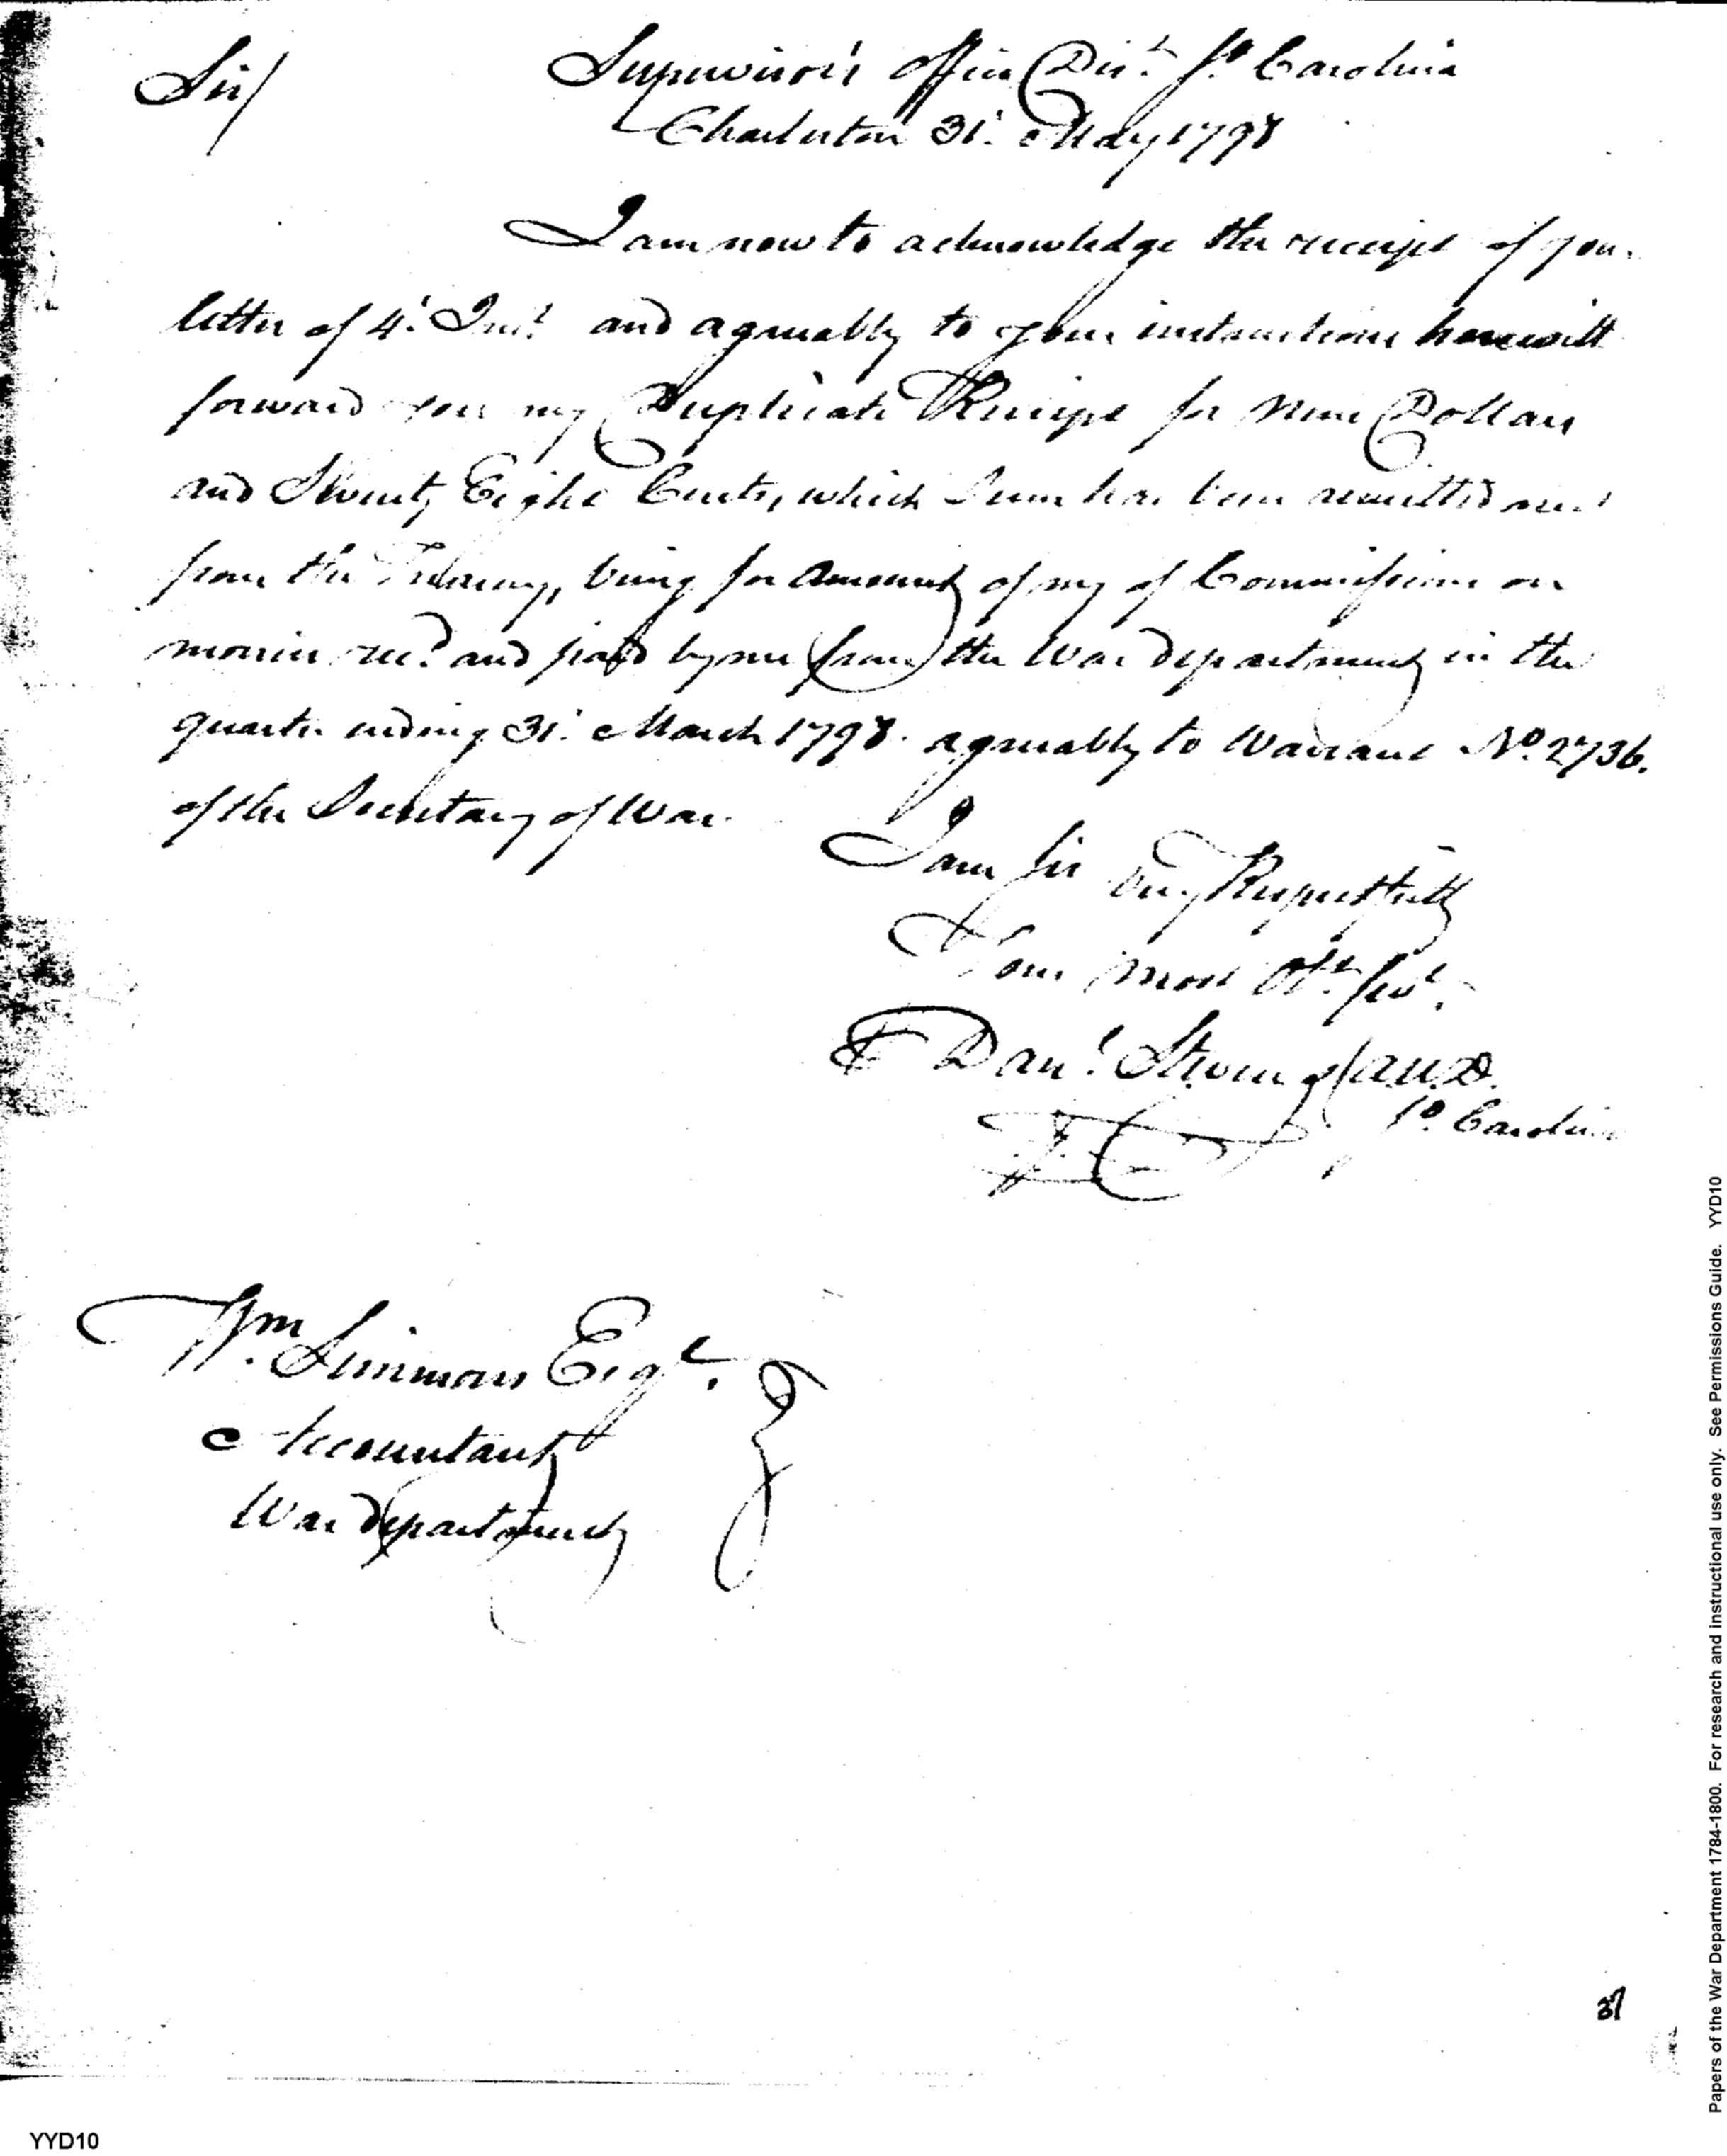 Sir/
Supervisor's Office Dist. So. Carolina
Charleston 31st. May 1798
I am now to acknowledge the receipt of your
letter of 4t. Inst. and agreeably to your instructions herewith
forward you my Duplicate Receipt for Nine Dollars
and Seventy Eight Cents, which Sum has been remitted me
from the Treasury, being for Amount of my of Commissions on
monies recd. and paid by me from the War department in the
quarter ending 31st. March 1798. agreeably to Warrant No. 2736.
of the Secretary of War.
I am Sir Very Respectfully
Your most Obt. Servt.
Danl. Stevens
So. Carolina
Wm. Simmons Esqr.
Accountant
War department
31
Papers of the War Department 1784-1800. For research and instructional use only. See Permissions Guide. YYD10
YYD10